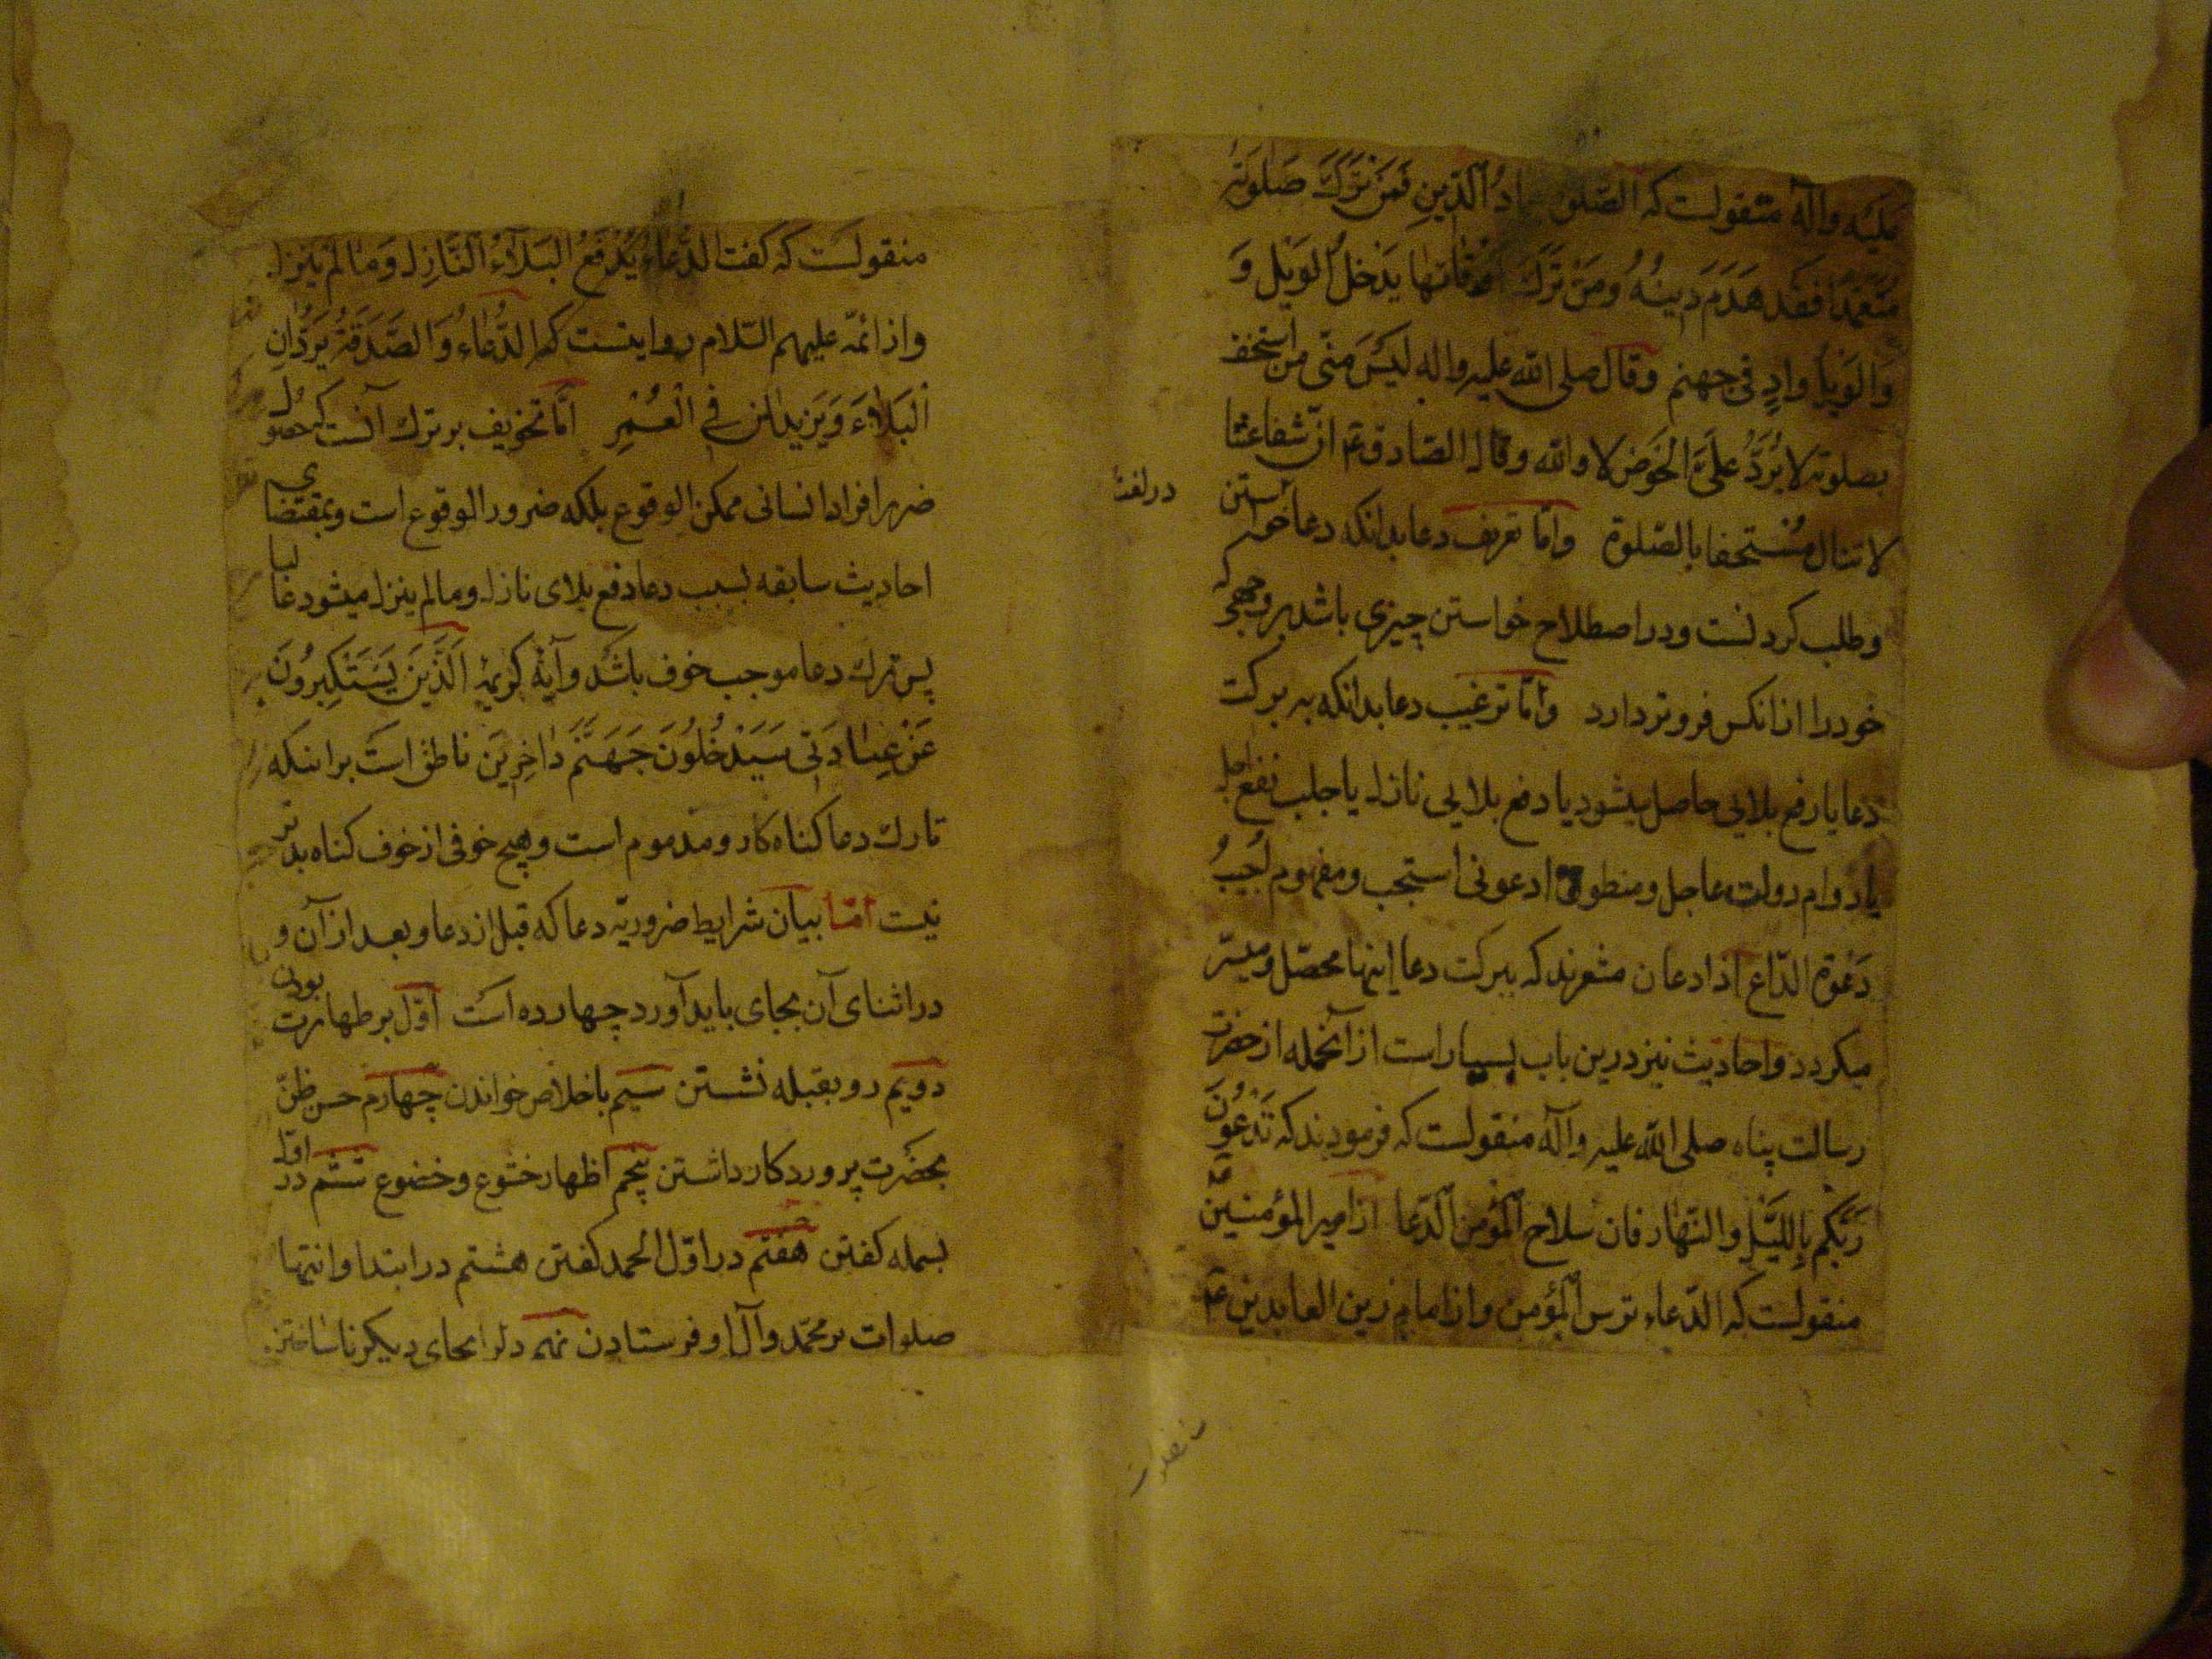 علیه وآله منقولست که الصّلوة عمادُ الدّینِ فَمَنْ تَرَکَ صَلوتَهُ
مُتَعَمِّدًا فَقَد هَدَمَ دینُهُ ومَنْ تَرَکَ اَوْقاتَها یَدْخلُ الوَیْل وَ
وَالوَیْل وادٍ فی جهنم وقال صلی الله علیه واله لَیْسَ مِنّی من استخف
بصلوته لا یُرَدُّ عَلَیَّ الحَوْض لا والله وقال الصّادق ع انّ شفاعتنا
لا تنال مُسْتخفا بالصّلوة وامّا تعریف دعا بدانکه دعا خواستن
در لغت
وطلب کردنست ودر اصطلاح خواستن چیزی باشد بر وجهی که
خود را از انکس فروتر دارد وامّا ترغیب دعا بدانکه ببرکت
دعا یا رفع بلایی حاصل میشود یا دفع بلایی نازل یا جلب نفع اجل
یا دوام دولت عاجل ومنطوق ادعونی استجب ومفهوم اُجیبُ
دَعْوَة الدّاع اذا دعان مشعرند که ببرکت دعا اینها محصّل ومیسّر
میکردد واحادیث نیز درین باب بسیار است از آنجمله از حضرت
رسالت پناه صلی الله علیه وآله منقولست که فرمودند که تَدْعُونَ
رَبَّکُم بِاللَّیْلِ والنّهار فان سلاح المؤمن الدّعا از امیر المؤمنین ع
منقولست که الدّعاء ترس المؤمن واز امام زین العابدین ع
منقولست که گفت الدّعاءُ یَدْفَعُ البَلآءُ النَّازِل وَمَا لَمْ یَنْزل
واز ائمّه علیهم السّلام روایتست که الدُّعاءُ وَالصَّدَقَةُ یَرُدّانِ
البَلاءَ وَیَزیدانِ فی الْعُمُرِ امّا تخویف بر ترک آنست که حصول
ضرر افراد انسانی ممکن الوقوع بلکه ضرور الوقوع است وبمقتضای
احادیث سابقه بسبب دعا دفع بلای نازل وما لم ینزل میشود غالبا
پس ترک دعا موجب خوف باشد وآیهٔ کریمهٔ اَلَّذینَ یَسْتَکْبِرُونَ
عَنْ عِبادَتی سَیَدْخُلُونَ جَهَنَّمَ داخِرینَ ناطق است بر اینکه
تارک دعا کناه کار ومذموم است وهیچ خوفی از خوف کناه بدتر
نیست امّا بیان شرایط ضروریّه دعا که قبل از دعا وبعد از آن و
در اثنای آن بجای باید آورد چهارده است اوّل بر طهارت بودن
دویم رو بقبله نشستن سیم باخلاص خواندن چهارم حسن ظنّ
بحضرت پروردکار داشتن پنجم اظهار خشوع وخضوع ششم در اوّل
بسمله کفتن هفتم در اوّل الحمد کفتن هشتم در ابتدا وانتها
صلوات بر محمّد وآل او فرستادن نهم دلرا بجای دیکر نا ساختن